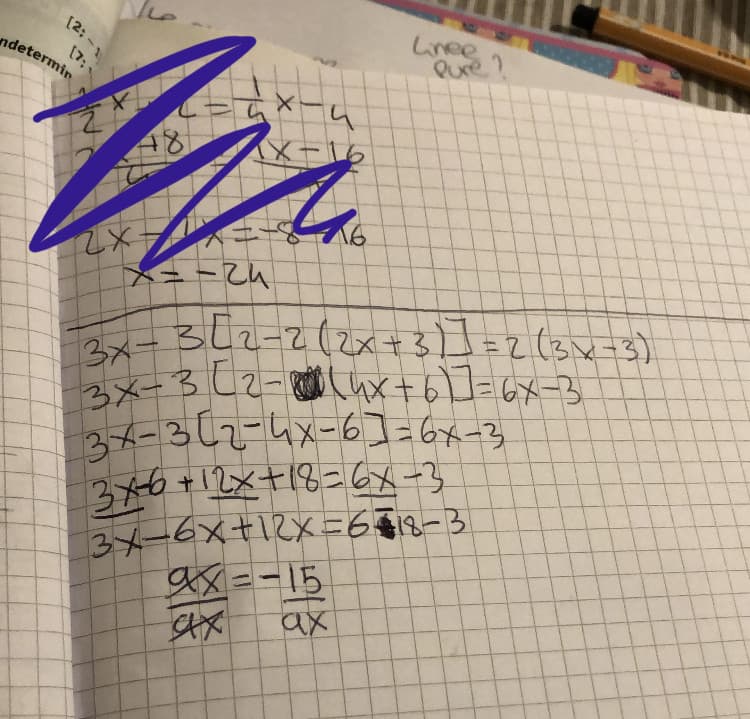 [2; -
[7;
ndetermin
Linee
pure?
1/2 x = 1/4 x - 4
+8 1x - 16
2x - 1x = -8 16
x = -24
3x - 3 [2 - 2 (2x + 3)] = 2 (3x - 3)
3x - 3 [2 - (4x + 6)] = 6x - 3
3x - 3 [2 - 4x - 6] = 6x - 3
3x - 6 + 12x + 18 = 6x - 3
3x - 6x + 12x = 6 - 18 - 3
9x = -15
9x 9x